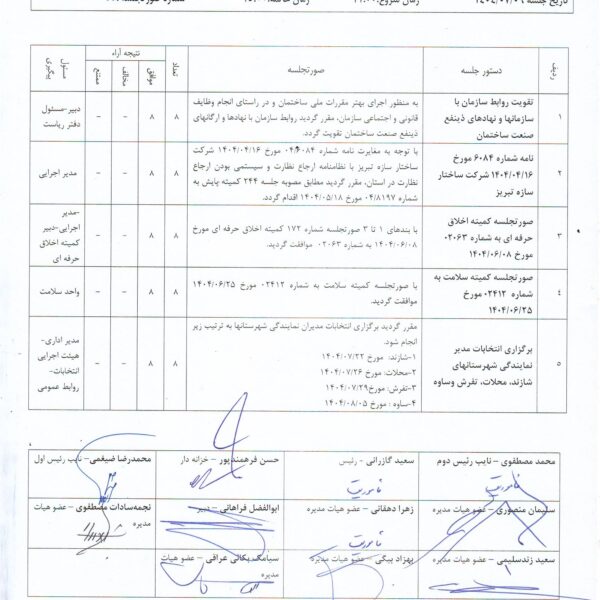 تاریخ جلسه ۱۴۰۴/۰۷/۰۹
زمان شروع:
زمان خاتمه:
شماره صورتجلسه:
ردیف
دستور جلسه
صورتجلسه
تعداد
نتیجه آراء
موافق
مخالف
ممتنع
مسئول پیگیری
۱
تقویت روابط سازمان با
سازمانها و نهادهای ذینفع
صنعت ساختمان
به منظور اجرای بهتر مقررات ملی ساختمان و در راستای انجام وظایف
قانونی و اجتماعی سازمان، مقرر گردید روابط سازمان با نهادها و ارگانهای
ذینفع صنعت ساختمان تقویت گردد.
۸
۸
–
–
دبیر-مسئول
دفتر ریاست
۲
نامه شماره ۶۰۸۴ مورخ
۱۴۰۴/۰۴/۱۶ شرکت ساختار
سازه تبریز
با توجه به مغایرت نامه شماره ۰۴/۶۰۸۴ مورخ ۱۴۰۴/۰۴/۱۶ شرکت
ساختار سازه تبریز با نظامنامه ارجاع نظارت و سیستمی بودن ارجاع
نظارت در استان، مقرر گردید مطابق مصوبه جلسه ۲۴۴ کمیته پایش به
شماره ۰۴/۸۱۹۷ مورخ ۱۴۰۴/۰۵/۱۸ اقدام گردد.
۸
۸
–
–
مدیر اجرایی
۳
صورتجلسه کمیته اخلاق
حرفه ای به شماره ۰۲۰۶۳
مورخ ۱۴۰۴/۰۶/۰۸
با بندهای ۱ تا ۳ صورتجلسه شماره ۱۷۲ کمیته اخلاق حرفه ای مورخ
۱۴۰۴/۰۶/۰۸ به شماره ۰۲۰۶۳ موافقت گردید.
۸
۸
–
–
-مدیر
اجرایی-دبیر
کمیته اخلاق
حرفه ای
۴
صورتجلسه کمیته سلامت به
شماره ۰۲۴۱۲ مورخ
۱۴۰۴/۰۶/۲۵
با صورتجلسه کمیته سلامت به شماره ۰۲۴۱۲ مورخ ۱۴۰۴/۰۶/۲۵
موافقت گردید.
۸
۸
–
–
واحد سلامت
۵
برگزاری انتخابات مدیر
نمایندگی شهرستانهای
شازند، محلات، تفرش وساوه
مقرر گردید برگزاری انتخابات مدیران نمایندگی شهرستانها به ترتیب زیر
انجام شود.
۱-شازند: مورخ ۱۴۰۴/۰۷/۲۲
۲-محلات: مورخ ۱۴۰۴/۰۷/۲۶
۳-تفرش: مورخ۱۴۰۴/۰۷/۲۹
۴-ساوه : مورخ ۱۴۰۴/۰۸/۰۵
۸
۸
–
–
مدیر اداری-
هیئت اجرایی
انتخابات-
روابط عمومی
محمد مصطفوی – نایب رئیس دوم
سعید گازرانی - رئیس
حسن فرهمندپور – خزانه دار
محمدرضا ضیغمی – نایب رئیس اول
ماموریت
ماموریت
سلیمان منصوری – عضو هیات مدیره
زهرا دهقانی – عضو هیات مدیره
ابوالفضل فراهانی – دبیر
نجمه‌سادات مصطفوی – عضو هیات
مدیره
ماموریت
سعید زندسلیمی – عضو هیات مدیره
بهزاد بیگی – عضو هیات مدیره
سیامک یکانی عراقی – عضو هیات
مدیره